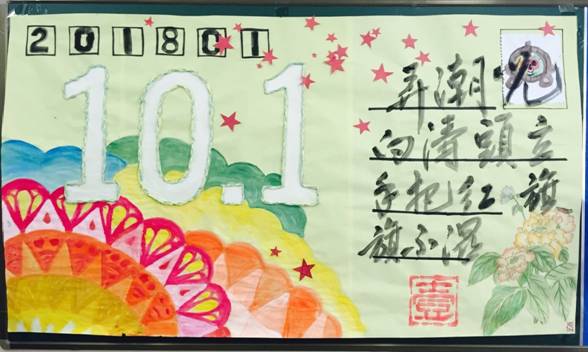 201801
10.1
弄潮儿
向涛頭立
手把红旗
旗不湿
壹